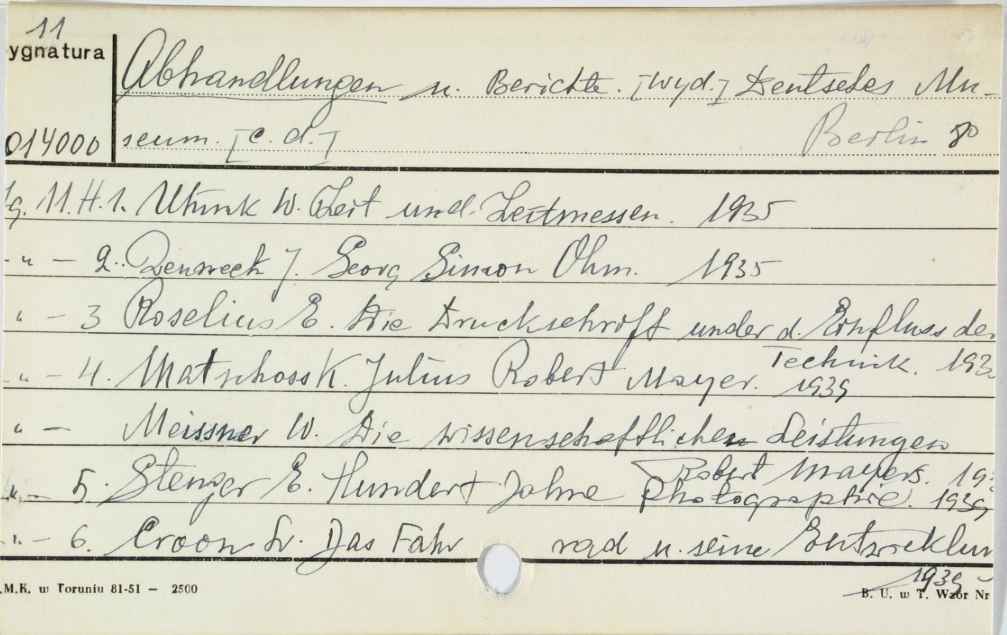 11
ygnatura
Abhandlungen u. Berichte. [Wyd.] Deutsches Mu-
014000 seum. [c.d.] Berlin 8°
g. 11. H. 1. W. Zeit und Zeitmessen. 1935
-"- 2. Zenneck J. Georg Simon Ohm. 1935
" - 3 Roselius E. Die Druckschrift under d. Einfluss de
Technik. 193
-"- 4. Matschoss K. Julius Robert Mayer. 1939
" - Meissner W. Die wissenschaftlichen Leistungen
Robert Mayers. 19
"- 5. Stenger E. Hundert Jahre Photographie. 1939
-"- 6. Croon L. Das Fahr rad u. seine Entwicklun
1939
.M.K. w Toruniu 81-51 — 2500
B. U. w T. Wzór Nr